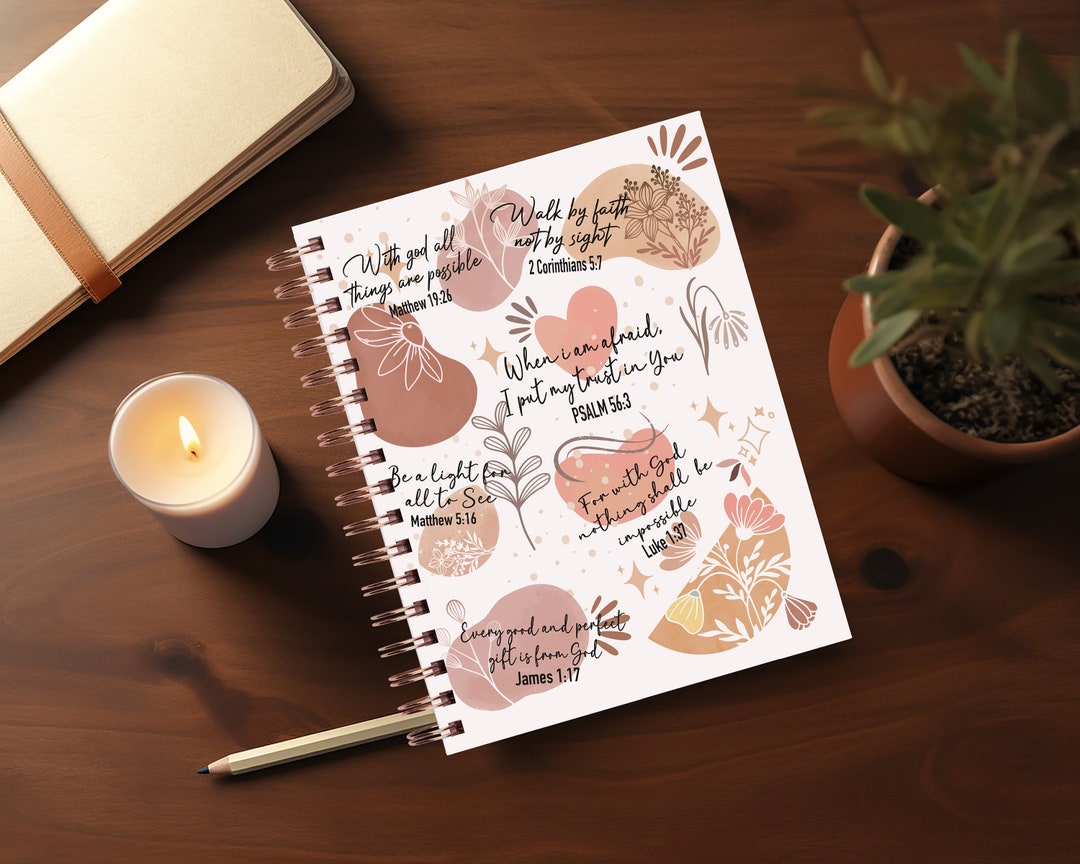 With god all
things are possible
Matthew 19:26
Walk by faith
not by sight
2 Corinthians 5:7
When i am afraid,
I put my trust in You
PSALM 56:3
Be a light for
all to See
Matthew 5:16
For with God
nothing shall be
impossible
Luke 1:37
Every good and perfect
gift is from God
James 1:17